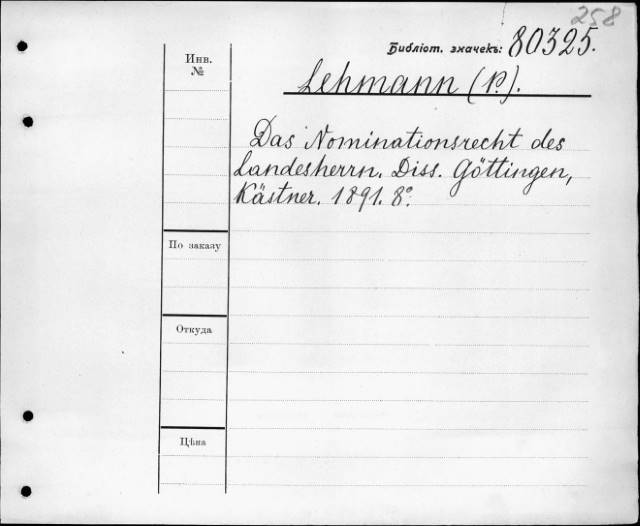 258
Библіот. значекъ: 80325.
Инв.
№
Lehmann (P.).
Das Nominationsrecht des
Landesherrn. Diss. Göttingen,
Kästner. 1891. 8º.
По заказу
Откуда
Цѣна